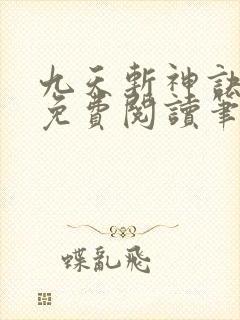 九天斬神訣
免費閱讀筆
蝶亂飛